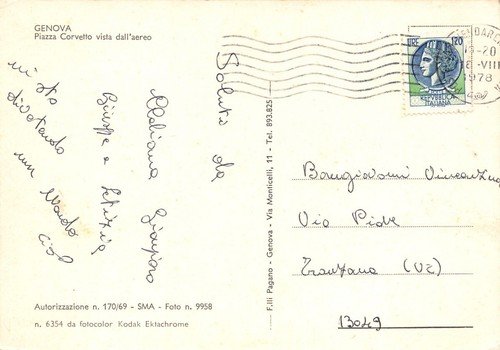 GENOVA
Piazza Corvetto vista dall'aereo
Saluti da
Giuseppe e Letizia
mi sto
divertendo
un mondo
ciao
Autorizzazione n. 170/69 - SMA - Foto n. 9958
n. 6354 da fotocolor Kodak Ektachrome
F.lli Pagano - Genova - Via Monticelli, 11 - Tel. 893.825
LIRE 120
REPUBBLICA
ITALIANA
12-20
1978
Bongiovanni Vincenzina
Via Piave
(VC)
13049